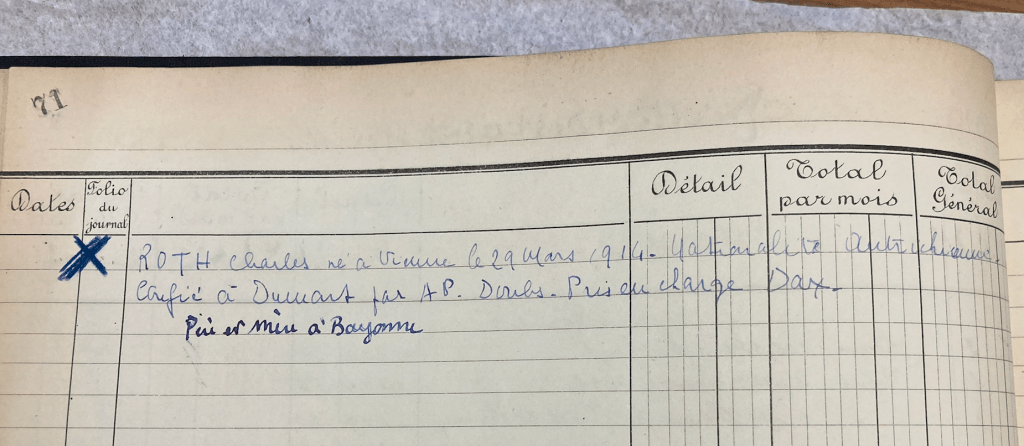 71
Dates
Folio
du
journal
Détail
Total
par mois
Total
Général
ROTH Charles né à Vienne le 29 Mars 1914. Nationalité Autrichienne.
Confié à Dumont par AP. Doubs. Pris en charge Dax.
Père et Mère à Bayonne